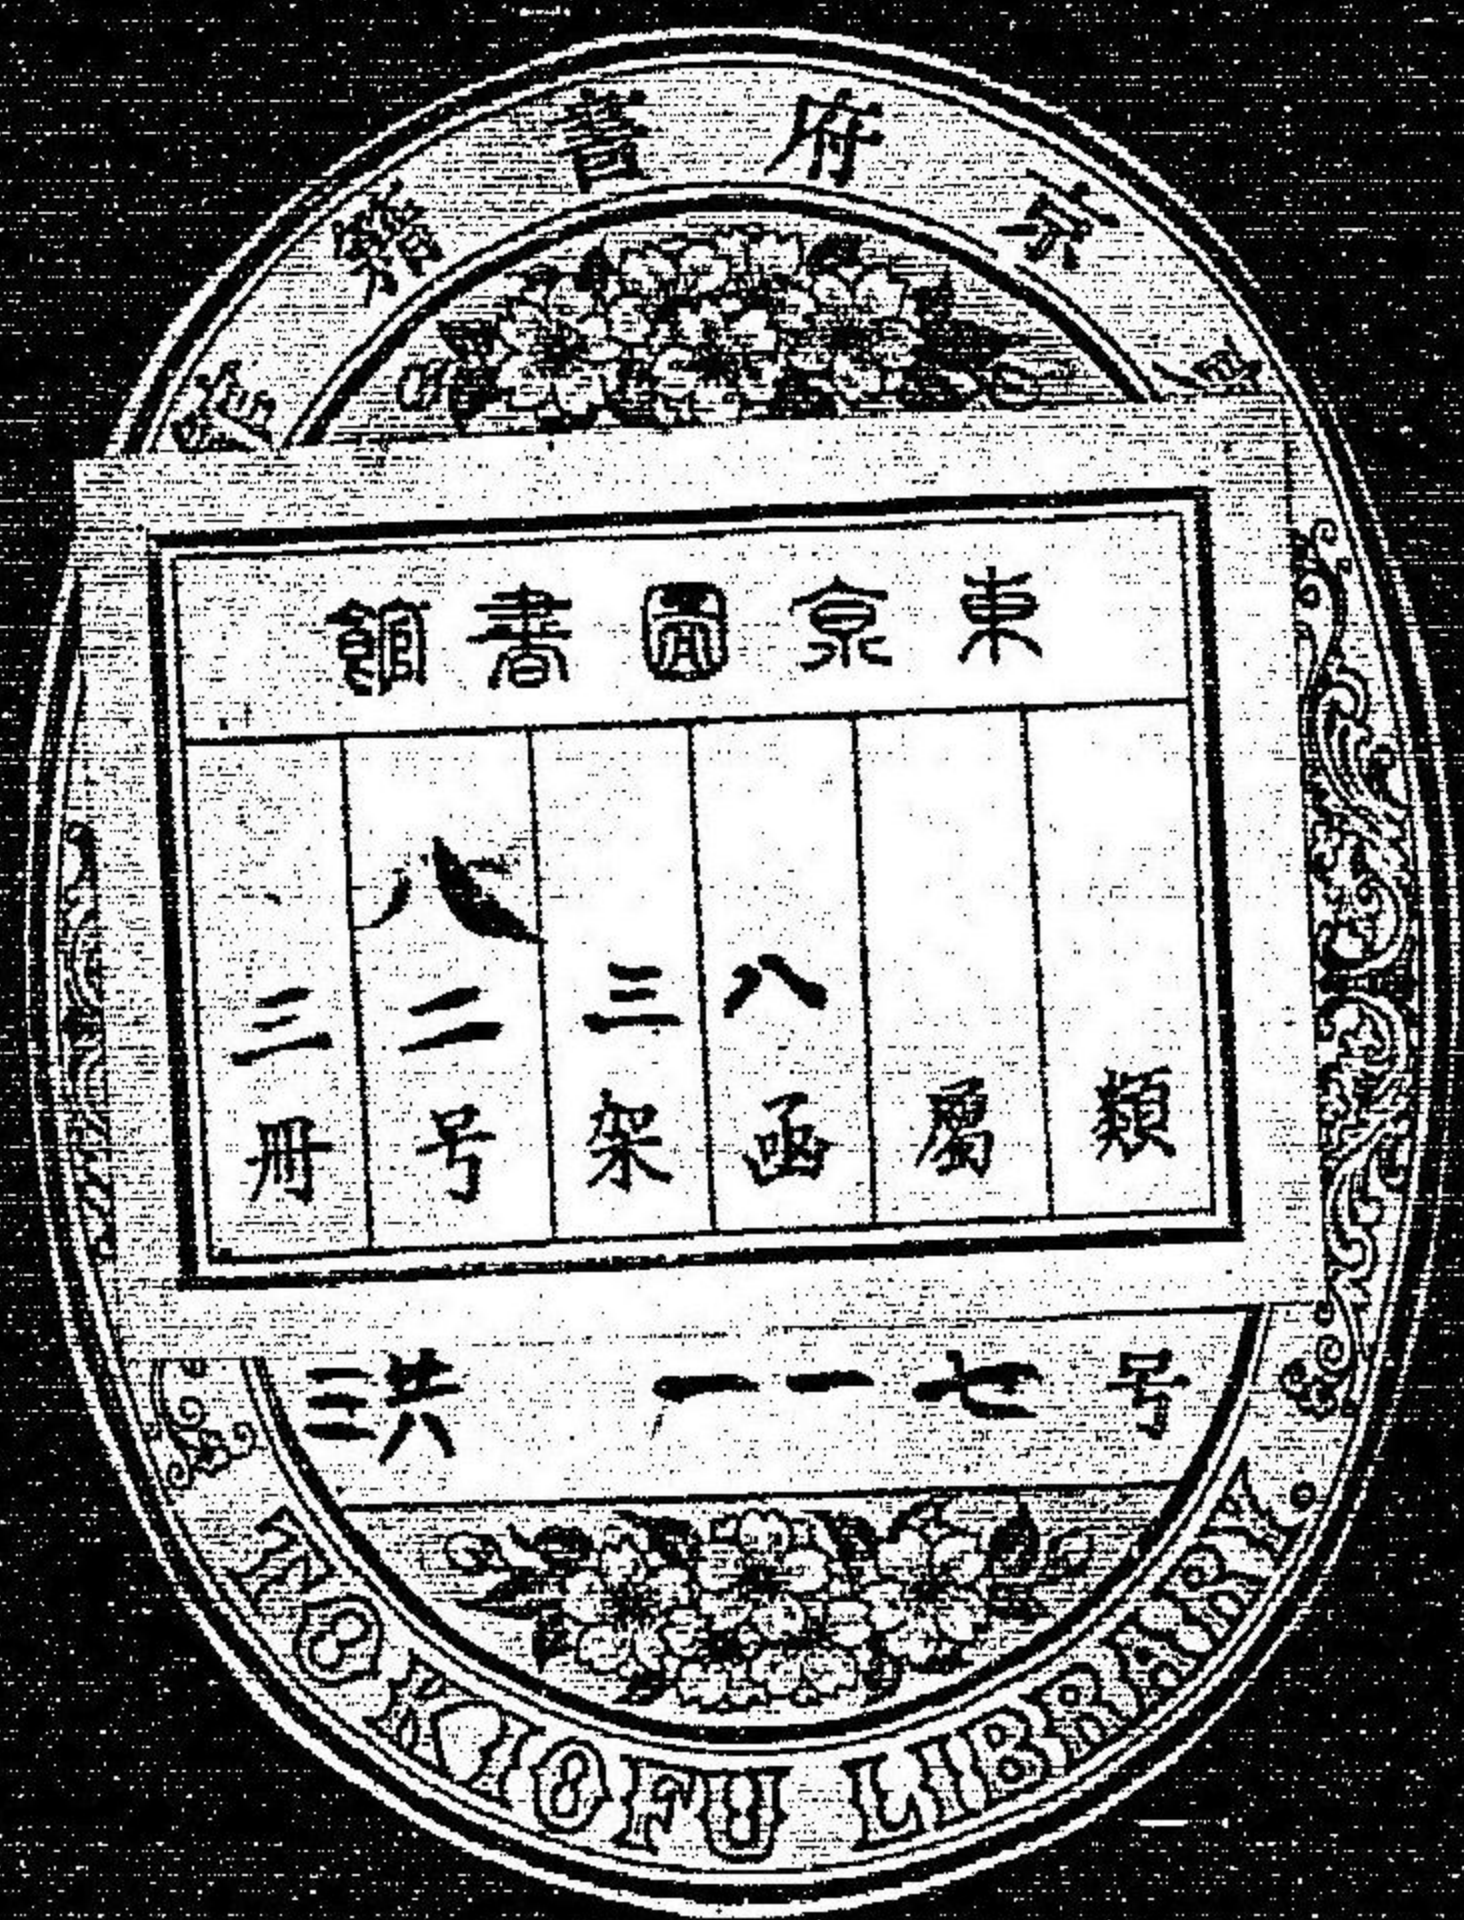 東京府書籍館
東京圖書館
類
屬
八函
三架
八二号
三冊
号七一一 共三
TOKIOFU LIBRARY.